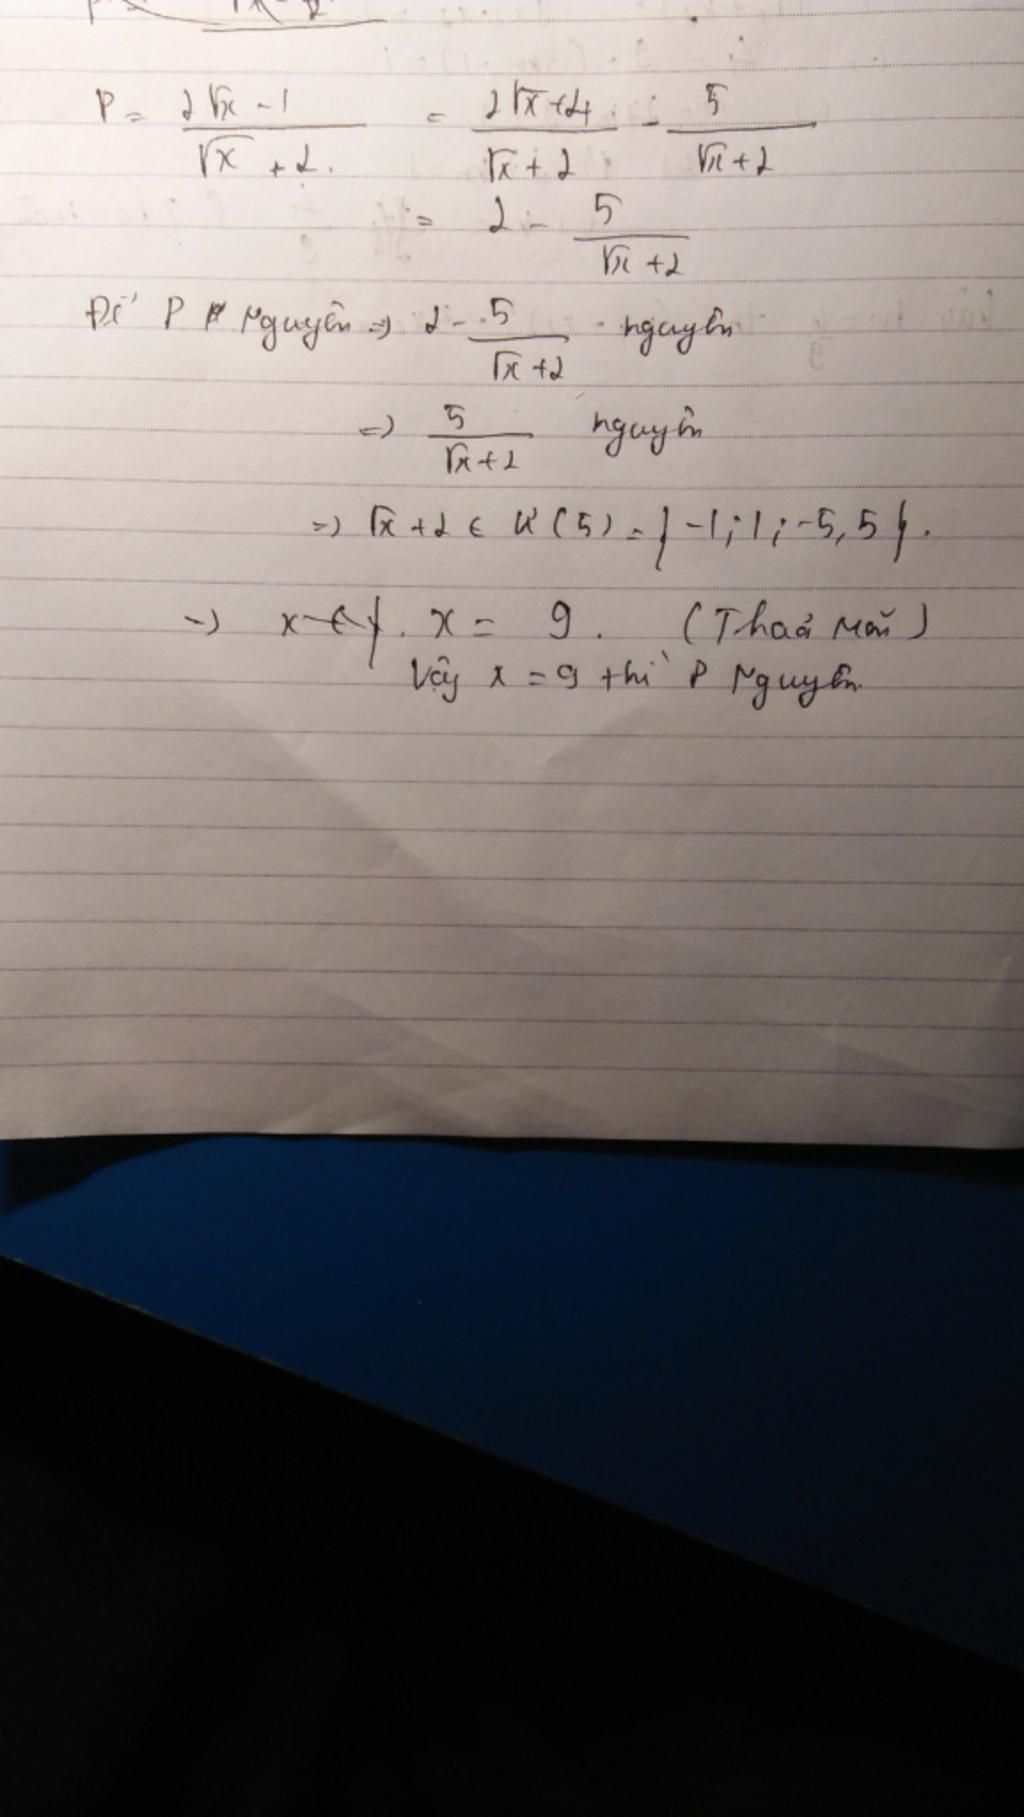 P = (2√x - 1)/(√x + 2) = (2√x + 4)/(√x + 2) - 5/(√x + 2)
= 2 - 5/(√x + 2)
Để P Nguyên => 2 - 5/(√x + 2) nguyên
=> 5/(√x + 2) nguyên
=> √x + 2 ∈ Ư(5) = { -1; 1; -5, 5 }.
=> x = 9. (Thoả Mãn)
Vậy x = 9 thì P Nguyên